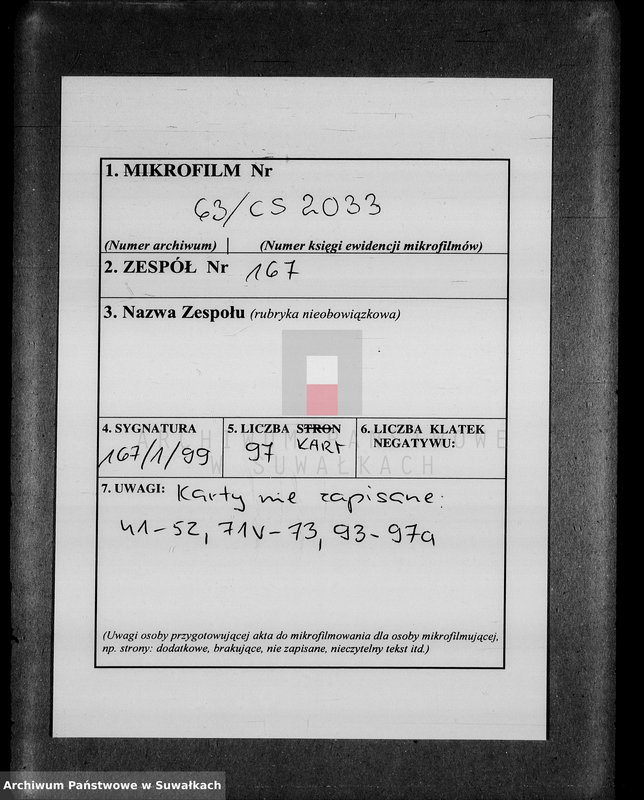 1. MIKROFILM Nr
63/CS 2033
(Numer archiwum) | (Numer księgi ewidencji mikrofilmów)
2. ZESPÓŁ Nr 167
3. Nazwa Zespołu (rubryka nieobowiązkowa)
4. SYGNATURA
167/1/99
5. LICZBA STRON
97 KART
6. LICZBA KLATEK
NEGATYWU:
ARCHIWUM PAŃSTWOWE
W SUWAŁKACH
7. UWAGI: Karty nie zapisane:
41-52, 71v-73, 93-97a
(Uwagi osoby przygotowującej akta do mikrofilmowania dla osoby mikrofilmującej,
np. strony: dodatkowe, brakujące, nie zapisane, nieczytelny tekst itd.)
Archiwum Państwowe w Suwałkach